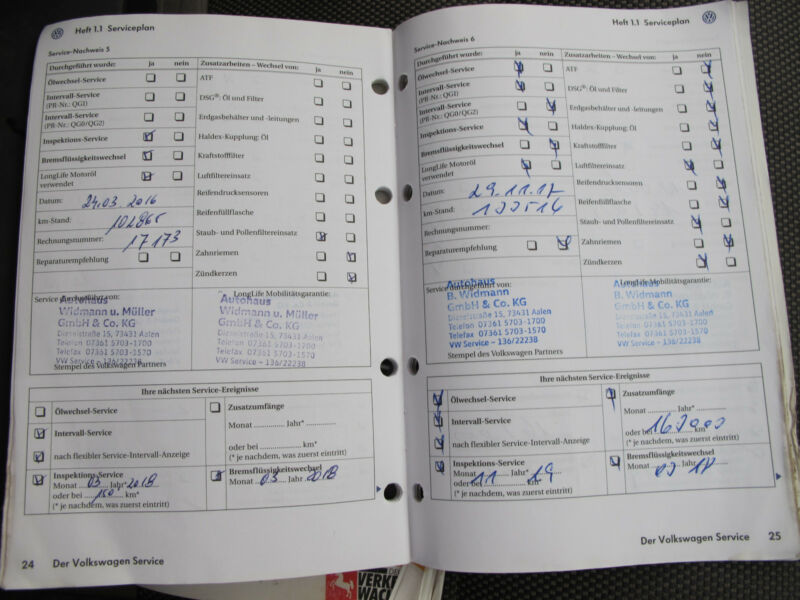 Heft 1.1 Serviceplan
Service-Nachweis 5
Durchgeführt wurde: ja nein
Ölwechsel-Service
Intervall-Service
(PR-Nr.: QGI)
Intervall-Service
(PR-Nr.: QG0/QG2)
Inspektions-Service
Bremsflüssigkeitswechsel
LongLife Motoröl
verwendet
Datum: 24.03.2016
km-Stand: 102865
Rechnungsnummer: 17173
Reparaturempfehlung
Zusatzarbeiten – Wechsel von: ja nein
ATF
DSG®: Öl und Filter
Erdgasbehälter und -leitungen
Haldex-Kupplung: Öl
Kraftstofffilter
Luftfiltereinsatz
Reifendrucksensoren
Reifenfüllflasche
Staub- und Pollenfiltereinsatz
Zahnriemen
Zündkerzen
Service durchgeführt von:
Autohaus
Widmann u. Müller
GmbH & Co. KG
Dieselstraße 15, 73431 Aalen
Telefon 07361 5703-1700
Telefax 07361 5703-1570
VW Service – 136/22238
Stempel des Volkswagen Partners
LongLife Mobilitätsgarantie:
Autohaus
Widmann u. Müller
GmbH & Co. KG
Dieselstraße 15, 73431 Aalen
Telefon 07361 5703-1700
Telefax 07361 5703-1570
VW Service – 136/22238
Ihre nächsten Service-Ereignisse
Ölwechsel-Service
Intervall-Service
nach flexibler Service-Intervall-Anzeige
Inspektions-Service
Monat 03 Jahr* 2018
oder bei 150 km*
(* je nachdem, was zuerst eintritt)
Zusatzumfänge
Monat Jahr*
oder bei km*
(* je nachdem, was zuerst eintritt)
Bremsflüssigkeitswechsel
Monat 03 Jahr 2018
24 Der Volkswagen Service
Heft 1.1 Serviceplan
Service-Nachweis 6
Durchgeführt wurde: ja nein
Ölwechsel-Service
Intervall-Service
(PR-Nr.: QGI)
Intervall-Service
(PR-Nr.: QG0/QG2)
Inspektions-Service
Bremsflüssigkeitswechsel
LongLife Motoröl
verwendet
Datum: 29.11.17
km-Stand:
Rechnungsnummer:
Reparaturempfehlung
Zusatzarbeiten – Wechsel von: ja nein
ATF
DSG®: Öl und Filter
Erdgasbehälter und -leitungen
Haldex-Kupplung: Öl
Kraftstofffilter
Luftfiltereinsatz
Reifendrucksensoren
Reifenfüllflasche
Staub- und Pollenfiltereinsatz
Zahnriemen
Zündkerzen
Service durchgeführt von:
Autohaus
B. Widmann
GmbH & Co. KG
Dieselstraße 15, 73431 Aalen
Telefon 07361 5703-1700
Telefax 07361 5703-1570
VW Service – 136/22238
Stempel des Volkswagen Partners
LongLife Mobilitätsgarantie:
Autohaus
B. Widmann
GmbH & Co. KG
Dieselstraße 15, 73431 Aalen
Telefon 07361 5703-1700
Telefax 07361 5703-1570
VW Service – 136/22238
Ihre nächsten Service-Ereignisse
Ölwechsel-Service
Intervall-Service
nach flexibler Service-Intervall-Anzeige
Inspektions-Service
Monat 11 Jahr* 19
oder bei km*
(* je nachdem, was zuerst eintritt)
Zusatzumfänge
Monat Jahr*
oder bei km*
(* je nachdem, was zuerst eintritt)
Bremsflüssigkeitswechsel
Monat 03 Jahr
Der Volkswagen Service 25